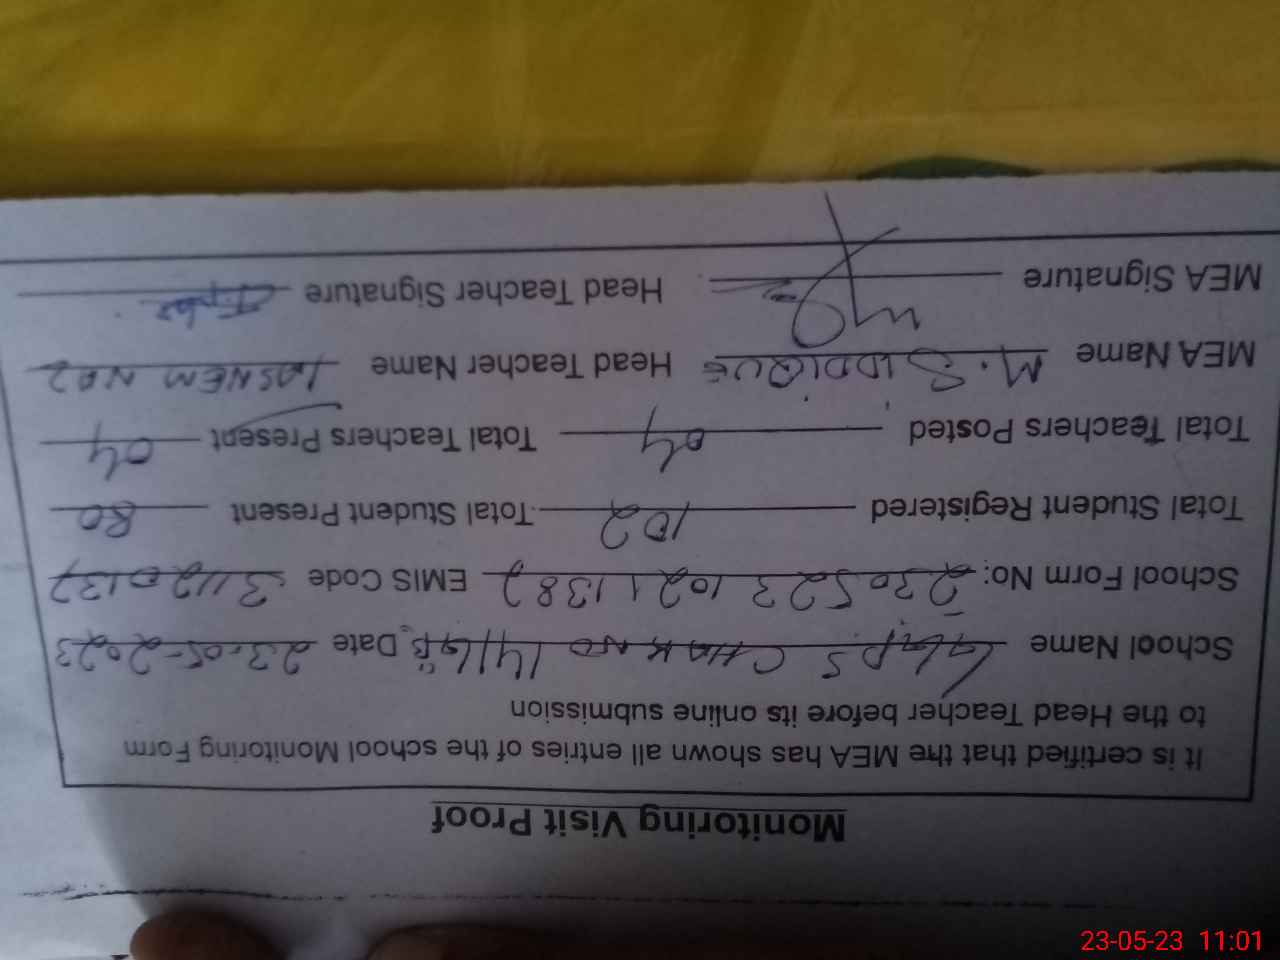 Monitoring Visit Proof
It is certified that the MEA has shown all entries of the school Monitoring Form
to the Head Teacher before its online submission
School Name GGPS CHAK NO 141/GB Date 23-05-2023
School Form No: 23052310211382 EMIS Code 31120137
Total Student Registered 102 Total Student Present 80
Total Teachers Posted 04 Total Teachers Present 04
MEA Name M. SIDDIQUE Head Teacher Name TASNEM NAZ
MEA Signature Head Teacher Signature
23-05-23 11:01